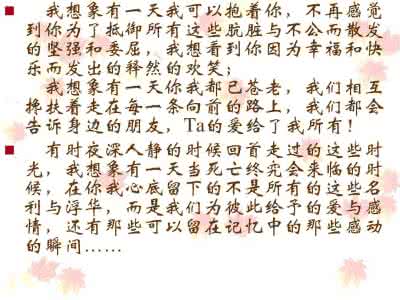 我想象有一天我可以抱着你，不再感觉
到你为了抵御所有这些肮脏与不公而散发
的坚强和委屈，我想看到你因为幸福和快
乐而发出的释然的欢笑；
我想象有一天你我都已苍老，我们相互
搀扶着走在每一条向前的路上，我们都会
告诉身边的朋友，Ta的爱给了我所有！
有时夜深人静的时候回首走过的这些时
光，我想象有一天当死亡终究会来临的时
候，在你我心底留下的不是所有的这些名
利与浮华，而是我们为彼此给予的爱与感
情，还有那些可以留在记忆中的那些感动
的瞬间……